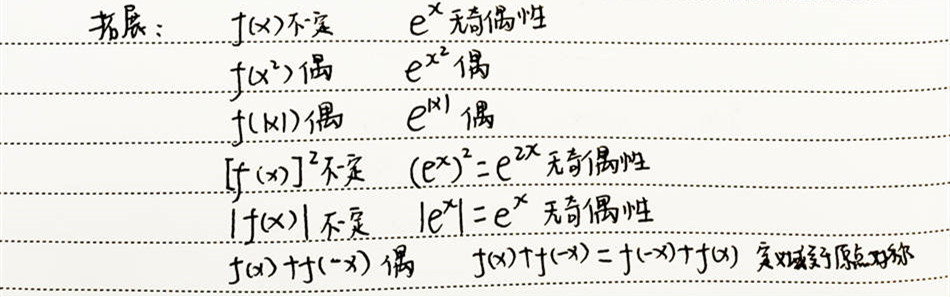 拓展： f(x)不定 eˣ 无奇偶性
f(x²)偶 e^{x²} 偶
f(|x|)偶 e^{|x|} 偶
[f(x)]²不定 (eˣ)²=e^{2x} 无奇偶性
|f(x)| 不定 |eˣ|=eˣ 无奇偶性
f(x)+f(-x) 偶 f(x)+f(-x)=f(-x)+f(x) 定义域关于原点对称